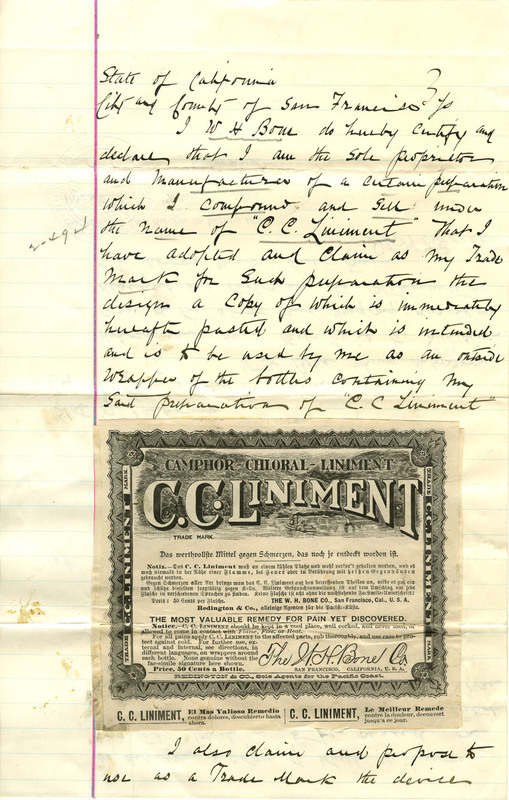 State of California
City and County of San Francisco } ss
I W H Bone do hereby certify and
declare that I am the Sole proprietor
and Manufacturer of a certain preparation
which I compound and Sell under
the name of "C. C. Liniment" that I
have adopted and Claim as my Trade
Mark for Such preparation the
design a Copy of which is immediately
hereafter pasted and which is intended
and is to be used by me as an outside
wrapper of the bottles containing my
said preparation of "C. C Liniment"
CAMPHOR-CHLORAL-LINIMENT
C.C. LINIMENT
TRADE MARK.
TRADE
C.C. LINIMENT
MARK
TRADE
C.C. LINIMENT
MARK
Das werthvollste Mittel gegen Schmerzen, das noch je entdeckt worden ist.
Preis: 50 Cents per Flasche. THE W. H. BONE CO., San Francisco, Cal., U. S. A.
Redington & Co., alleinige Agenten für die Pacific-Küste.
THE MOST VALUABLE REMEDY FOR PAIN YET DISCOVERED.
Notice.—C. C. LINIMENT should be kept in a cool place, well corked, and never used, or
allowed to come in contact with Flame, Fire, or Heat.
For all pains apply C. C. LINIMENT to the affected parts, rub thoroughly, and use care to pro-
tect against cold. For further use, ex-
ternal and internal, see directions, in
different languages, on wrappers around
each bottle. None genuine without the
fac-simile signature here shown.
Price, 50 Cents a Bottle.
The W. H. Bone Co
SAN FRANCISCO, CALIFORNIA, U. S. A.
REDINGTON & CO., Sole Agents for the Pacific Coast.
C. C. LINIMENT, El Mas Valioso Remedio
contra dolores, descubierto hasta
ahora.
C. C. LINIMENT, Le Meilleur Remede
contre la douleur, decouvert
jusqu'a ce jour.
I also claim and propose to
use as a Trade Mark the device